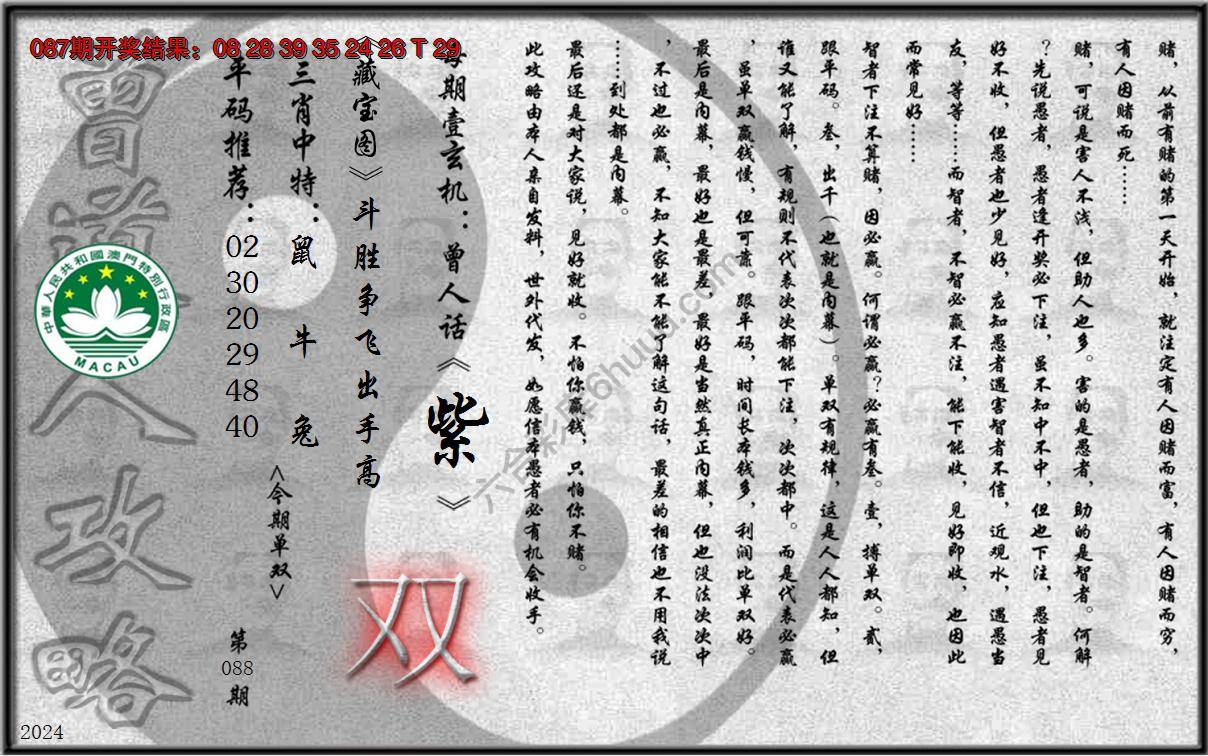 087期开奖结果：08 28 39 35 24 26 T 29
赌，从前有赌的第一天开始，就注定有人因赌而富，有人因赌而穷，
有人因赌而死……
赌，可说是害人不浅，但助人也多。害的是愚者，助的是智者。何解
？先说愚者，愚者逢开奖必下注，虽不知中不中，但也下注，愚者见
好不收，但愚者也少见好，应知愚者遇害智者不信，近观水，遇愚当
友，等等……而智者，不智必赢不注，能下能收，见好即收，也因此
而常见好……
智者下注不算赌，因必赢。何谓必赢？必赢有叁。壹，搏单双。贰，
跟平码。叁，出千（也就是内幕）。单双有规律，这是人人都知，但
谁又能了解，有规则不代表次次都能下注，次次都中。而是代表必赢
，虽单双赢钱慢，但可靠。跟平码，时间长本钱多，利润比单双好。
最后是内幕，最好也是最差，最好是当然真正内幕，但也没法次次中
，不过也必赢，不知大家能不能了解这句话，最差的相信也不用我说
……到处都是内幕。
最后还是对大家说，见好就收。不怕你赢钱，只怕你不赌。
此攻略由本人亲自发料，世外代发，如愿信本愚者必有机会收手。
每期壹玄机：曾人话《紫》
《藏宝图》斗胜争飞出手高
双
三肖中特：鼠 牛 兔
<今期单双>
平码推荐：02 30 20 29 48 40
第088期
曾道人攻略
中華人民共和國澳門特別行政區
MACAU
六合彩票6huuu.com
2024